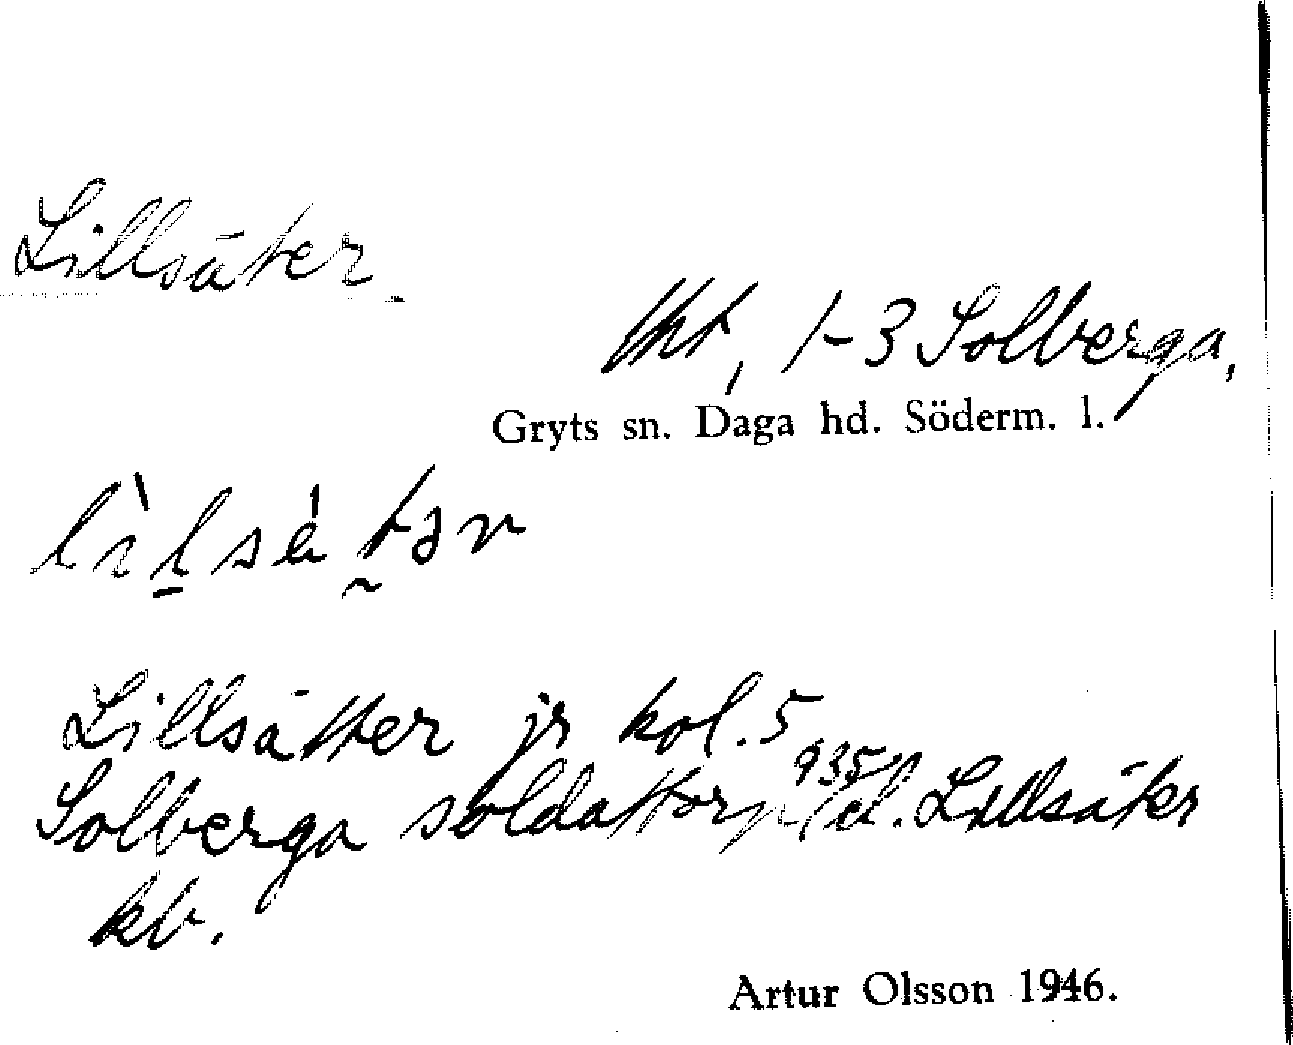 Lillsäter.
lht, 1-3 Solberga,
Gryts sn. Daga hd. Söderm. l.
Lillsätter jr kol. 5
Solberga soldattorp 935 el. Lillsäter
kb.
Artur Olsson 1946.